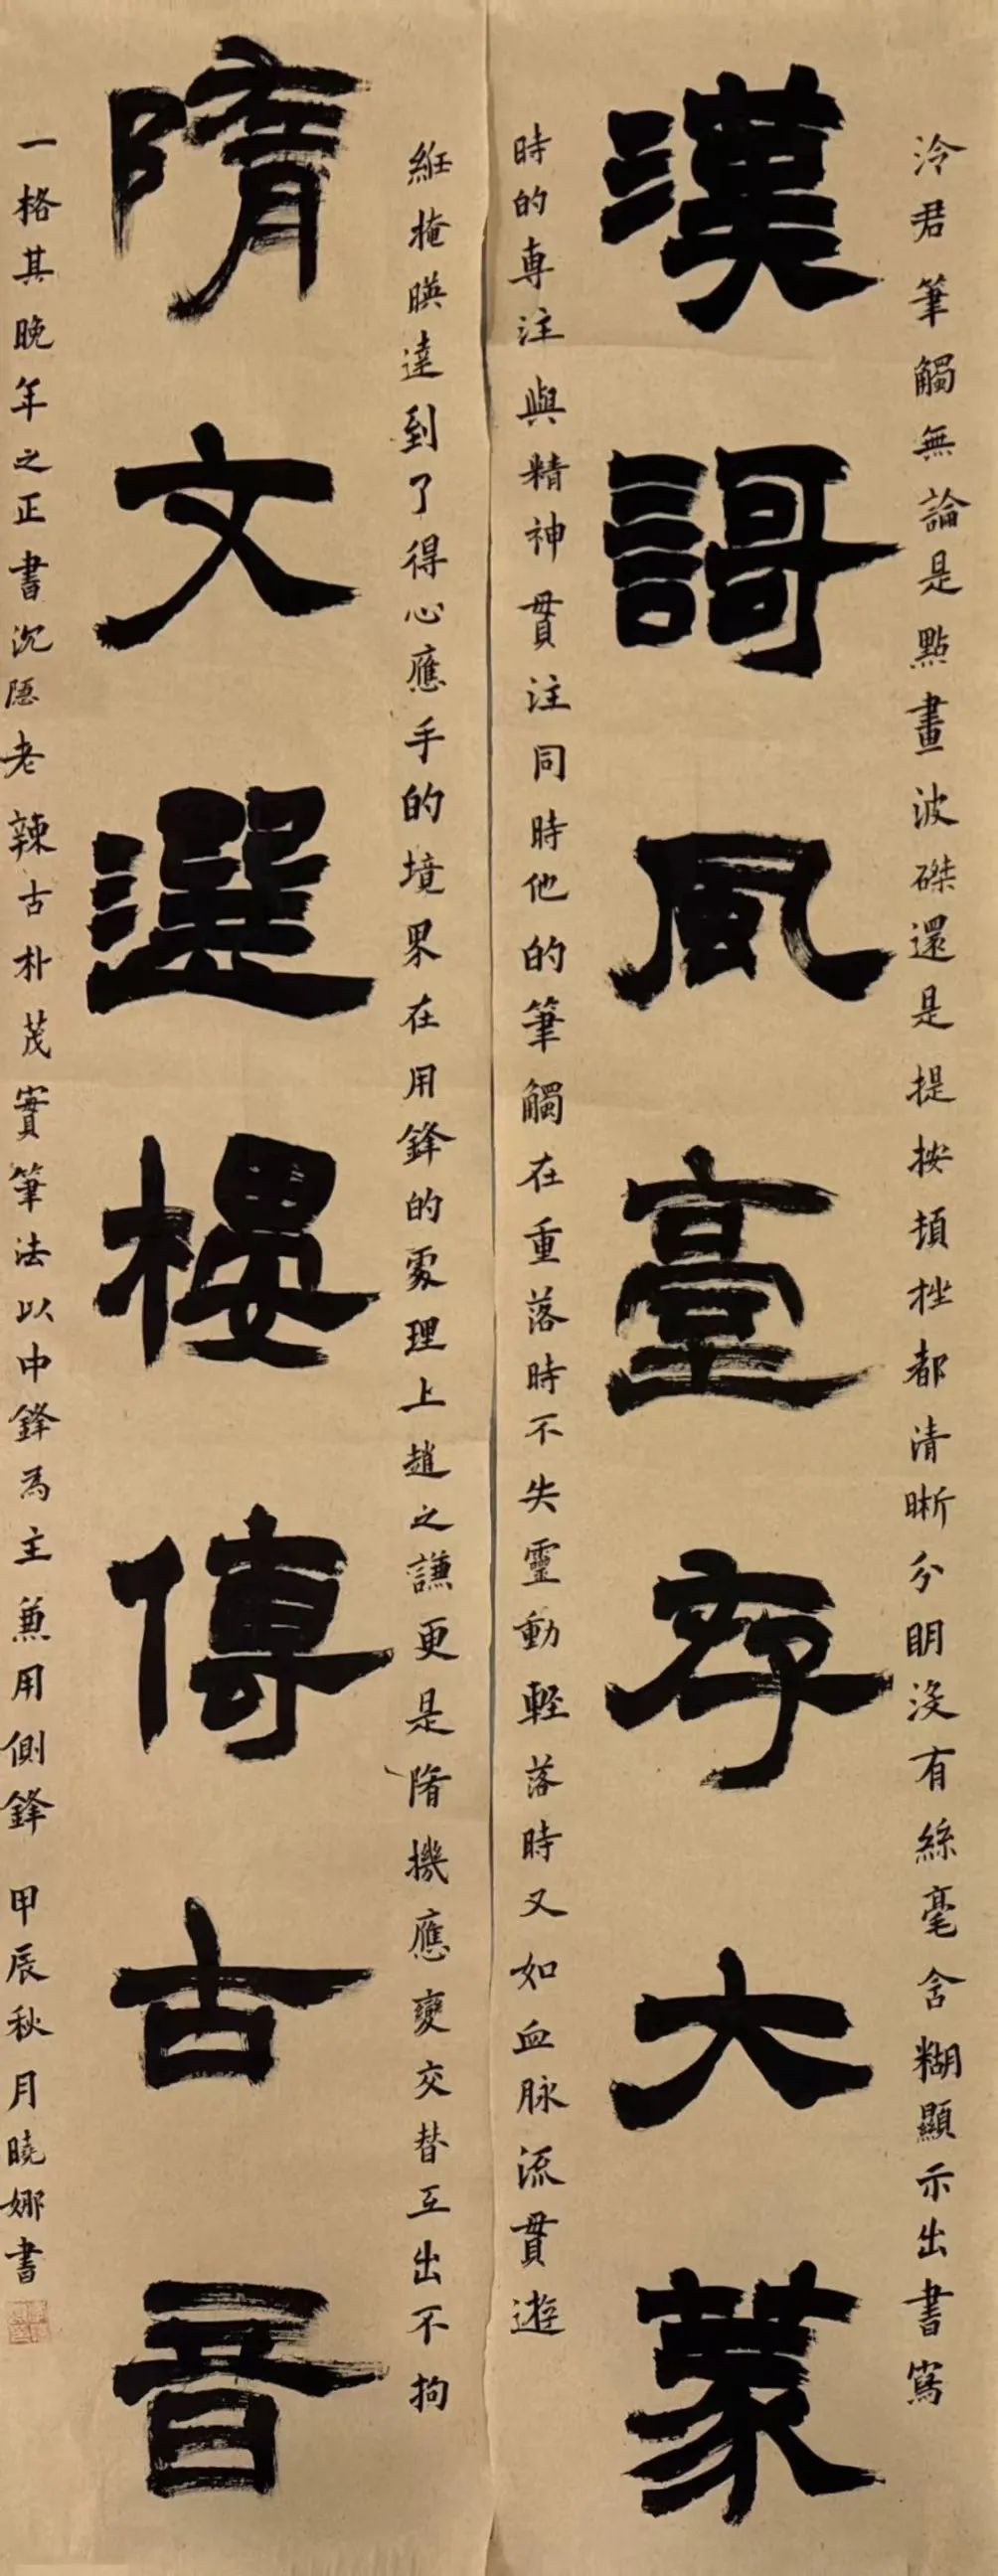 泠君筆觸無論是點畫波磔還是提按頓挫都清晰分明没有絲毫含糊顯示出書寫
漢謌風臺存大篆
時的専注與精神貫注同時他的筆觸在重落時不失靈動輕落時又如血脉流貫遊
絍掩暎達到了得心應手的境界在用鋒的處理上趙之謙更是隋機應變交替互出不拘
隋文選樓傳古音
一格其晚年之正書沉隠老辣古朴茂實筆法以中鋒為主兼用側鋒 甲辰秋月曉娜書